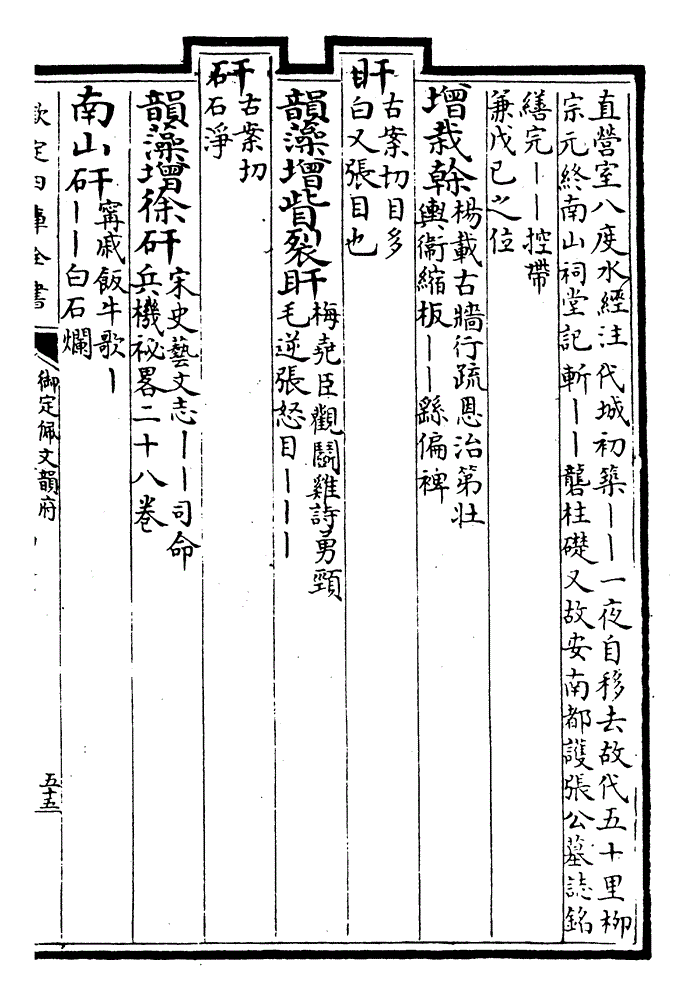 直營室八度水經注代城初築丨丨一夜自移去故代五十里柳
宗元終南山祠堂記斬丨丨礱柱礎又故安南都護張公墓誌銘
繕完丨丨控帶
兼戊己之位
增栽榦楊載古牆行疏恩治第壯
輿衞縮板丨丨繇偏裨
旰古案切目多
白又張目也
韻藻增眥裂旰梅堯臣觀鬭雞詩勇頸
毛逆張怒目丨丨丨
矸古案切
石淨
韻藻增徐矸宋史藝文志丨丨司命
兵機祕畧二十八卷
南山矸甯戚飯牛歌丨
丨丨白石爛
欽定四庫全書
御定佩文韻府
五十五